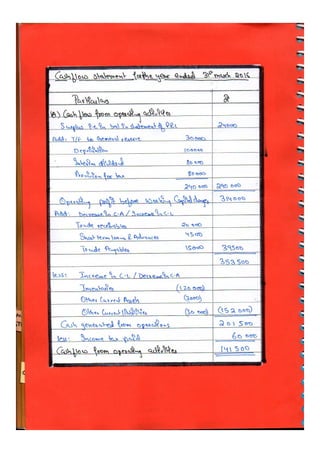 Cashflow statement for the year ended 31st march 2016
Particulars ₹
A) Cash flow from operating activities
Surplus i.e in bal in statement of P&L 24000
Add: T/f to General reserve 30000
Depreciation 100000
Interim dividend 80000
Provision for tax 80000
290000 290000
Operating profit before working Capital changes 314000
Add: Decrease in C.A / Increase in C.L
Trade receivables 20000
Short term loans & Advances 4500
Trade Payables 15000 39500
353500
less: Increase in C.L / Decrease in C.A
Inventories (120000)
Other Current Assets (2000)
Other Current liabilities (30000) (152000)
Cash generated from operations 201500
less: Income tax paid 60000
Cashflow from operating activities 141500